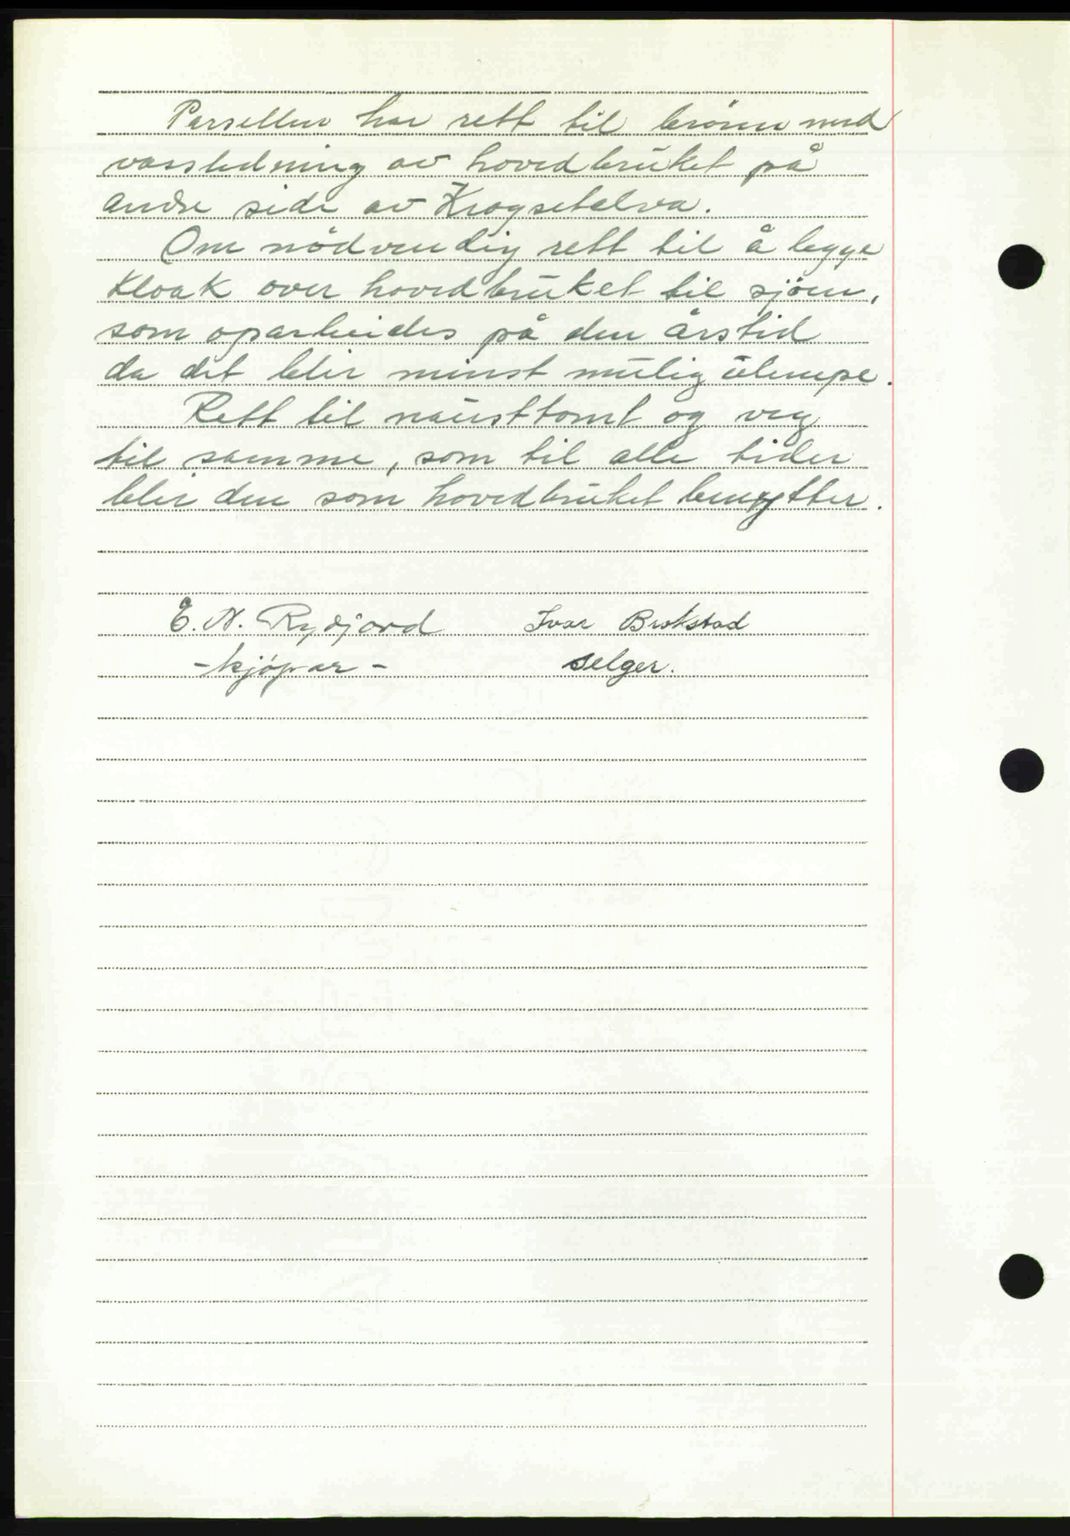 Parsellen har rett til brönn med
vassledning av hovedbruket på
andre side av Krogsetelva.
Om nödvendig rett til å legge
kloak over hovedbruket til sjöen,
som oparbeides på den årstid
da det blir minst mulig ulempe.
Rett til nausttomt og veg
til samme, som til alle tider
blir den som hovedbruket benytter.
E. N. Rydjord Ivar Brokstad
- kjøpar - selger.